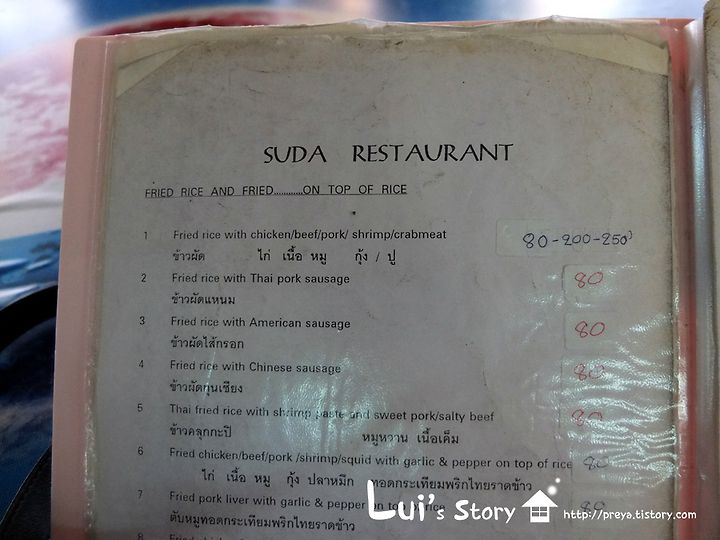 SUDA RESTAURANT
FRIED RICE AND FRIED............ON TOP OF RICE
1 Fried rice with chicken/beef/pork/ shrimp/crabmeat 80-200-250
ข้าวผัด ไก่ เนื้อ หมู กุ้ง / ปู
2 Fried rice with Thai pork sausage 80
ข้าวผัดแหนม
3 Fried rice with American sausage 80
ข้าวผัดไส้กรอก
4 Fried rice with Chinese sausage 80
ข้าวผัดกุนเชียง
5 Thai fried rice with shrimp paste and sweet pork/salty beef 80
ข้าวคลุกกะปิ หมูหวาน เนื้อเค็ม
6 Fried chicken/beef/pork /shrimp/squid with garlic & pepper on top of rice 80
ไก่ เนื้อ หมู กุ้ง ปลาหมึก ทอดกระเทียมพริกไทยราดข้าว
7 Fried pork liver with garlic & pepper on top of rice 80
ตับหมูทอดกระเทียมพริกไทยราดข้าว
8
Lui's Story http://preya.tistory.com